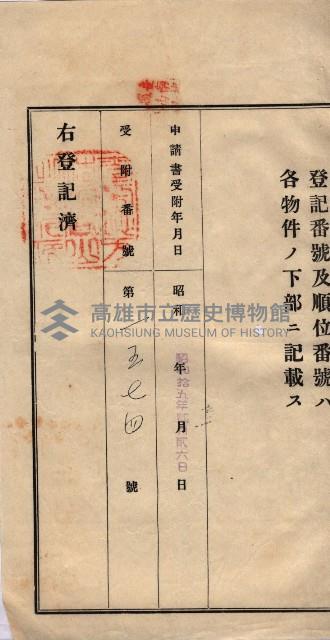 登記番號及順位番號ハ
各物件ノ下部ニ記載ス
申請書受附年月日 昭和 年 月 日
受附番號 第 五七四 號
右登記濟
高雄市立歷史博物館
KAOHSIUNG MUSEUM OF HISTORY